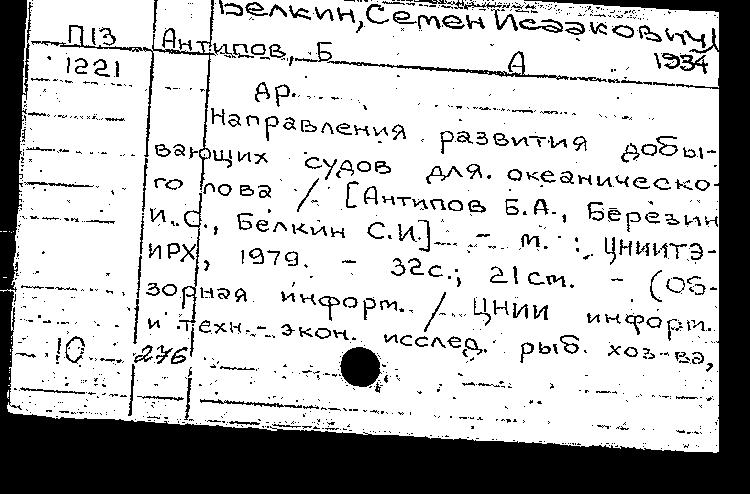 Белкин, Семен Исаакович
П13 Антипов, Б А 1934
1221
др.
Направления развития добы-
вающих судов для океаническо-
го лова / [Антипов Б.А., Березин
И.С., Белкин С.И.] - М. : ЦНИИТЭ-
ИРХ, 1979. - 32с.; 21см. - (Об-
зорная информ. / ЦНИИ информ.
и техн.-экон. исслед. рыб. хоз-ва,
10 276